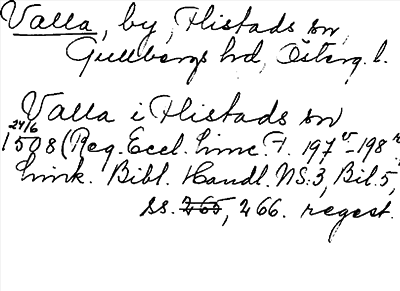 Valla, by, Flistads sn,
Gullbergs hd, Österg. l.
Valla i Flistads sn
24/6
1508 (Reg. Eccl. Linc. F. 197v-198r,
Link. Bibl. Handl. NS:3, Bil. 5,
ss. 265, 266. regest.